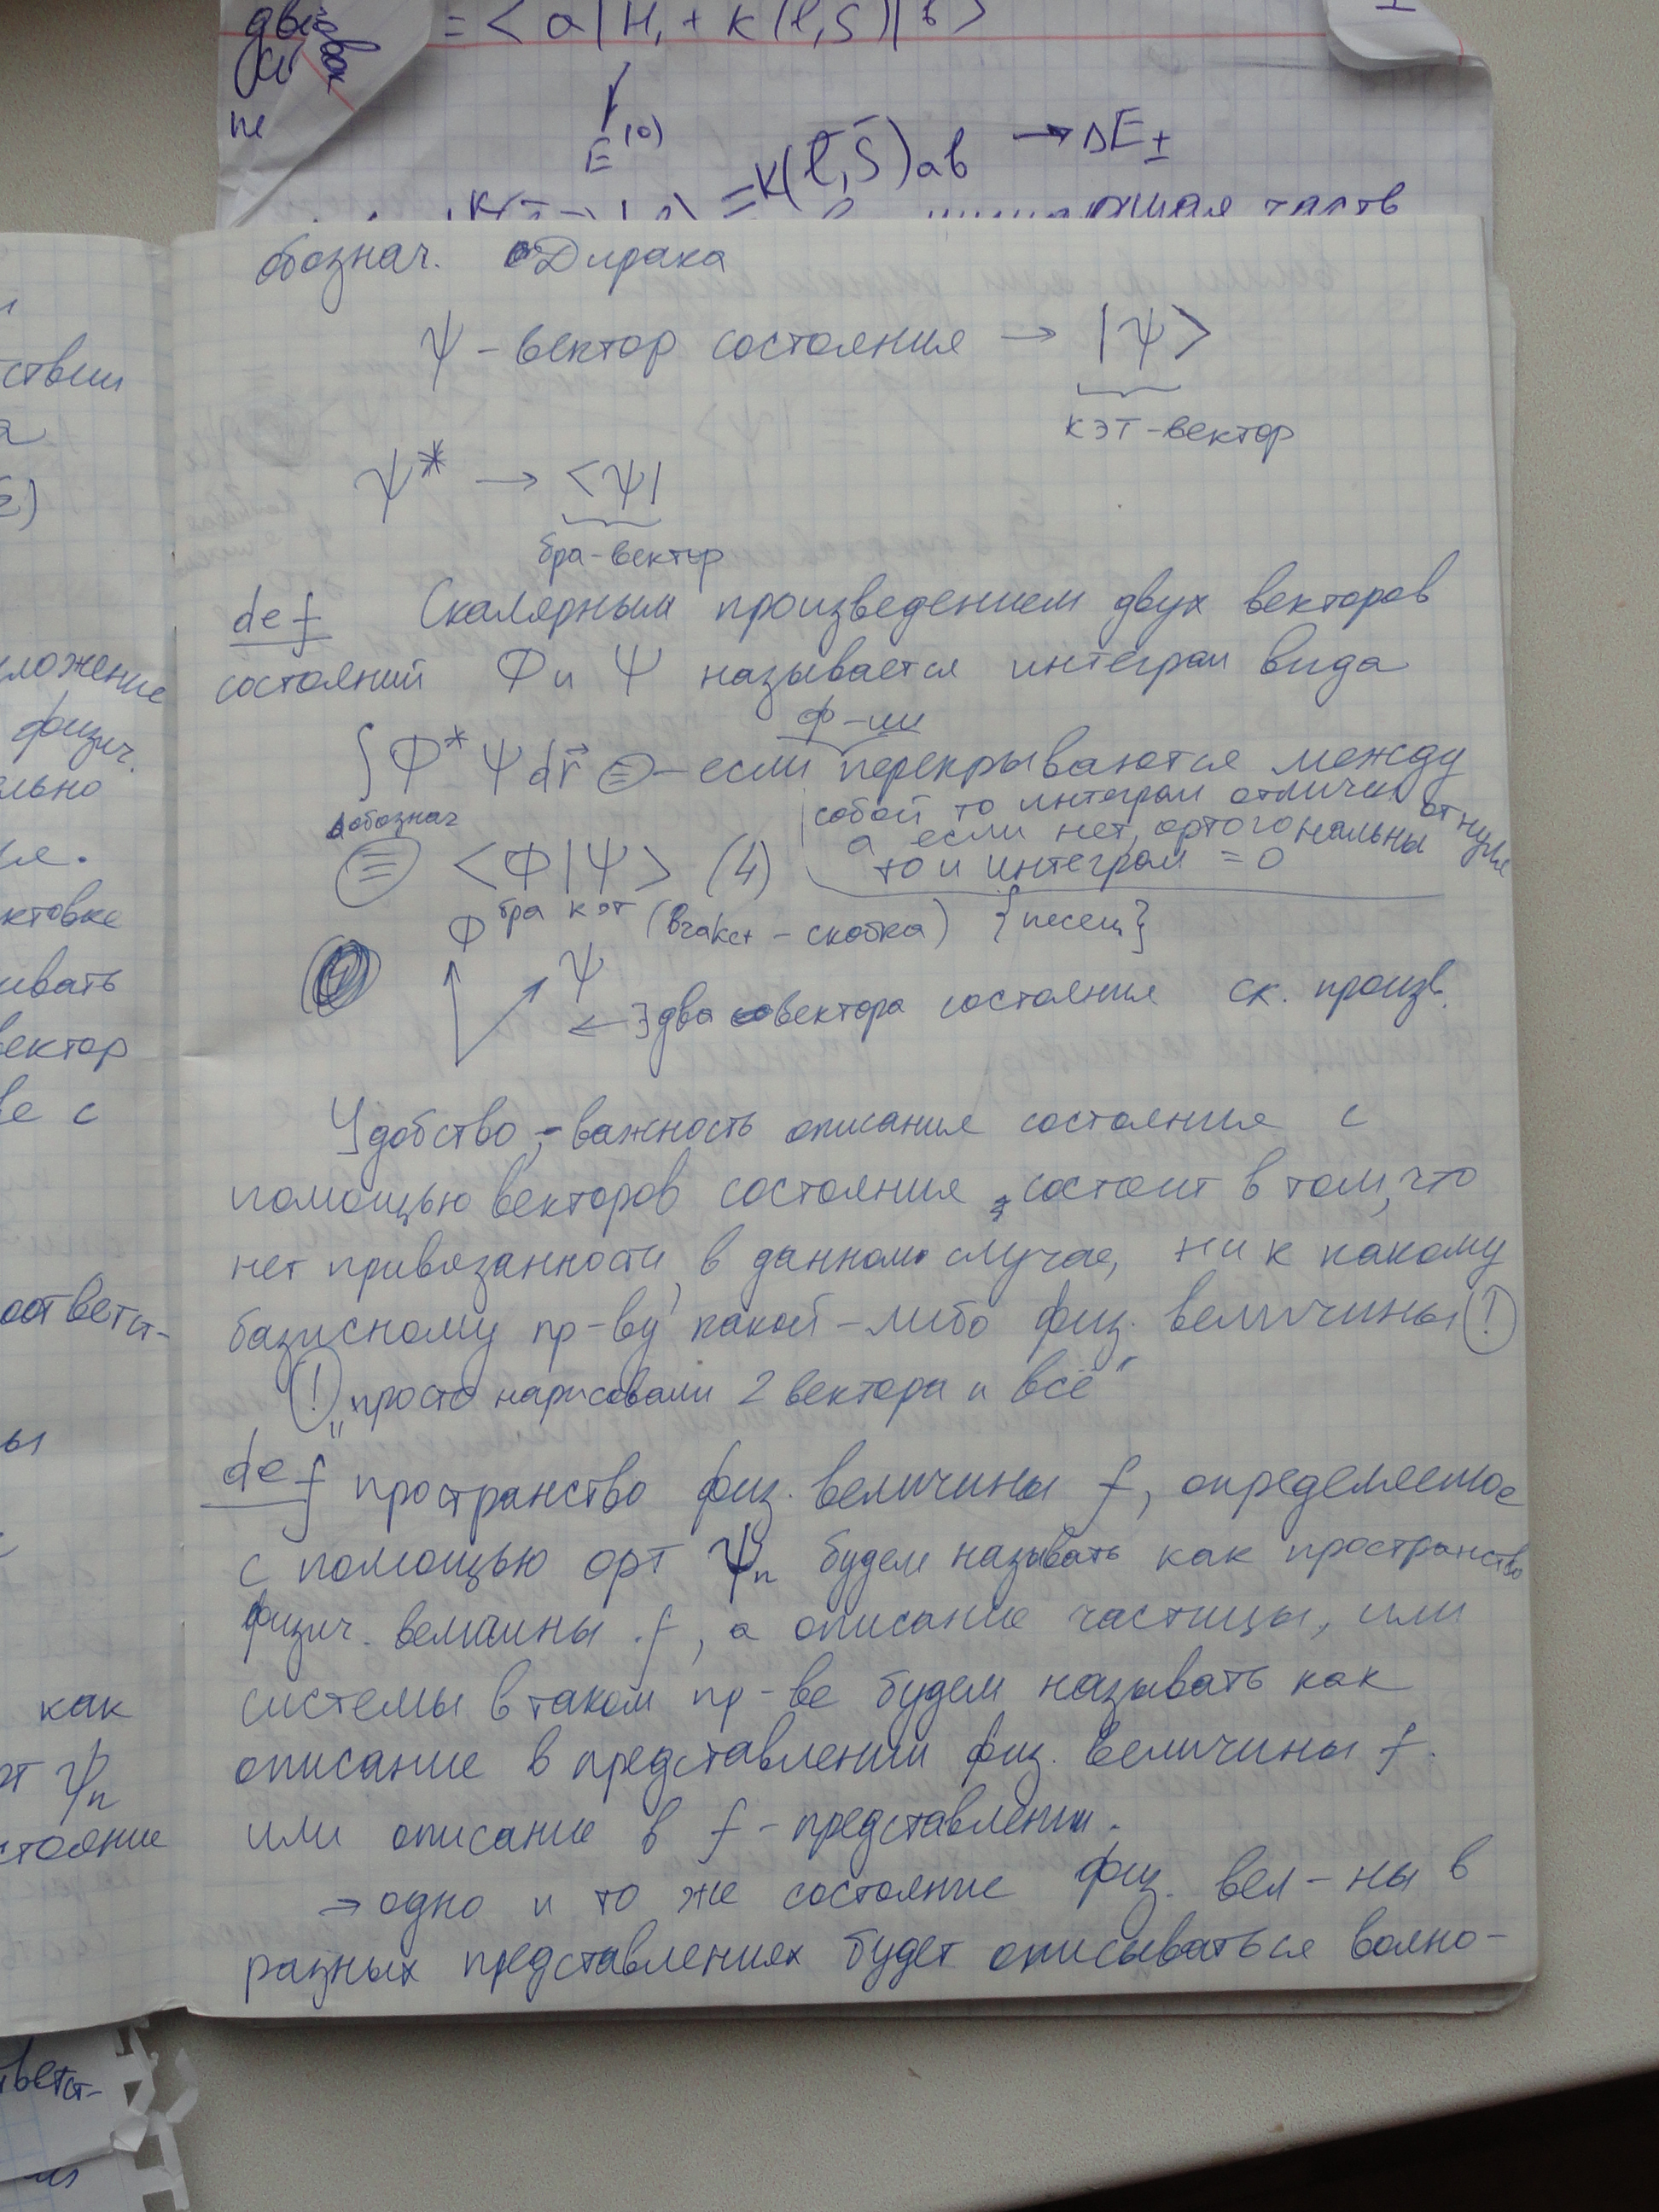 = <a|H₁ + K(l,S)|b>
не
E⁽⁰⁾
= K(l̄,S̄)ab → ΔE±
обознач. Дирака
Ψ - вектор состояния → |Ψ>
кэт-вектор
Ψ* → <Ψ|
бра-вектор
def Скалярным произведением двух векторов
состояний Ф и Ψ называется интеграл вида
ф-ии
∫Ф*Ψdr⃗ ⊜ - если перекрываются между
собой то интеграл отличен от нуля
а если нет, ортогональны
то и интеграл = 0
обознач
≡ <Ф|Ψ> (4)
бра кэт ( - скобка) {песец}
Ф
Ψ
← ∃ два вектора состояния ск. произв.
Удобство, - важность описания состояния с
помощью векторов состояния, состоит в том, что
нет привязанности, в данном случае, ни к какому
базисному пр-ву какой-либо физ. величины (!)
(!) „просто нарисовали 2 вектора и всё"
def пространство физ. величины f, определяемое
с помощью орт Ψn будем называть как пространство
физич. величины f, а описание частицы, или
системы в таком пр-ве будем называть как
описание в представлении физ. величины f.
или описание в f-представлении.
→ одно и то же состояние физ. вел-ны в
разных представлениях будет описываться волно-
ствии
ложение
физич.
льно
ктовке
ивать
вектор
ве с
оответст-
ы
как
от Ψn
стояние
тветст-